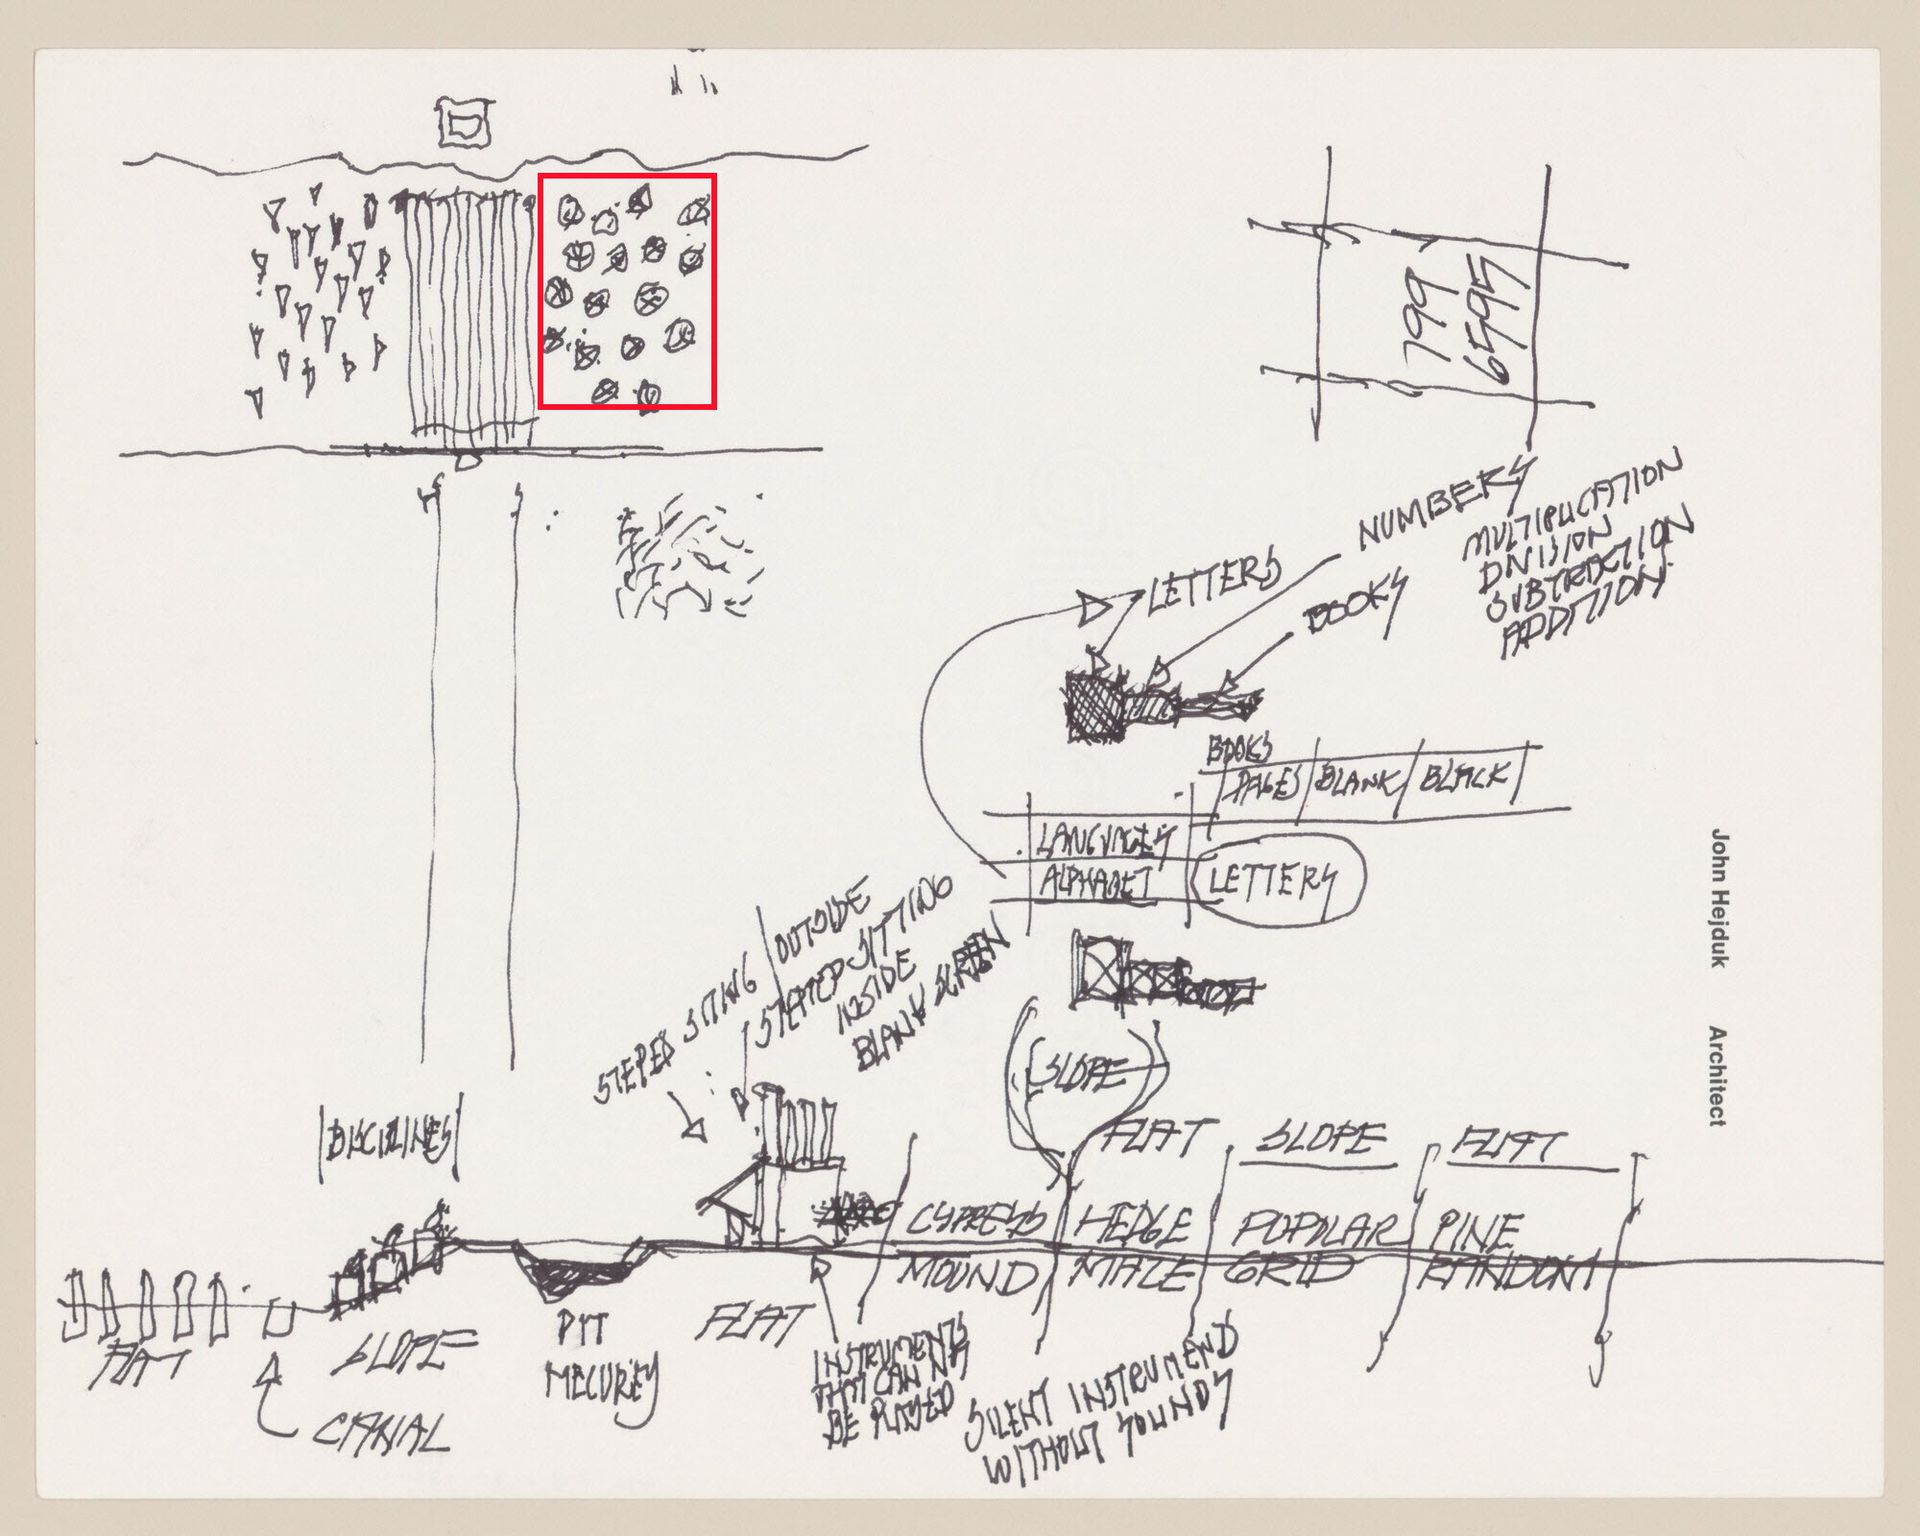 799
6595
NUMBERS
MULTIPLICATION
DIVISION
SUBTRACTION
ADDITION
LETTERS
BOOKS
BOOKS
PAGES BLANK BLACK
LANGUAGES
ALPHABET LETTERS
STEPED SITING OUTSIDE
SEATED SITTING
INSIDE
BLANK SCREEN
SLOPE
FLAT SLOPE FLAT
DISCIPLINES
CYPRESS HEDGE POPULAR PINE
MOUND MAZE GRID RANDOM
FLAT
SLOPE
PIT
MECUREY
FLAT
CANAL
INSTRUMENTS
THAT CAN NOT
BE PLAYED
SILENT INSTRUMEND
WITHOUT SOUNDS
John Hejduk Architect